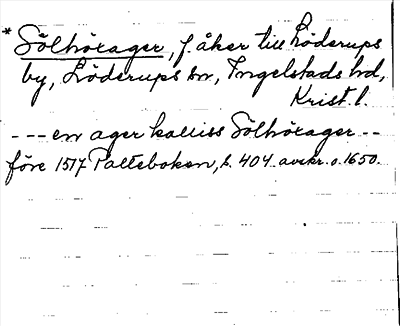 * Sölhöxager, f. åker till Löderups
by, Löderups sn, Ingelstads hd,
Krist. l.
--- en ager kalliss Sölhöxager --
före 1517 Palteboken, s. 404. avskr. o. 1650.